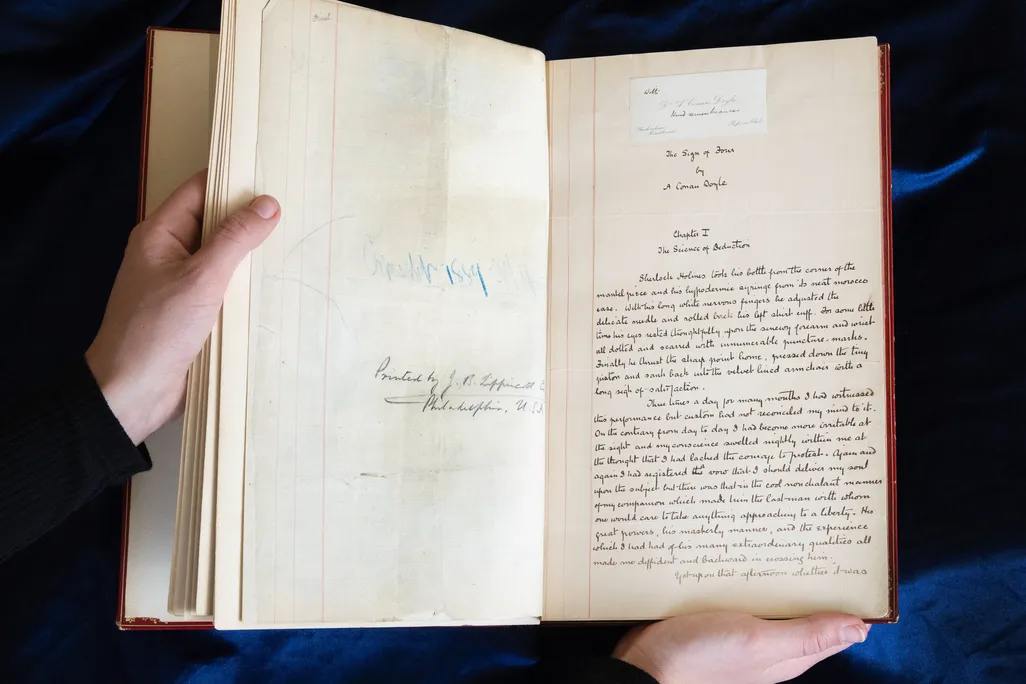 Printed by J. B. Lippincott
Philadelphia, U.S.A
With
Dr. A Conan Doyle
Kind remembrances
The Sign of Four
by
A Conan Doyle
Chapter I
The Science of Deduction
Sherlock Holmes took his bottle from the corner of the
mantel piece and his hypodermic syringe from its neat morocco
case. With his long white nervous fingers he adjusted the
delicate needle and rolled back his left shirt cuff. For some little
time his eyes rested thoughtfully upon the sinewy forearm and wrist
all dotted and scarred with innumerable puncture-marks.
Finally he thrust the sharp point home, pressed down the tiny
piston and sank back into the velvet lined armchair with a
long sigh of satisfaction.
Three times a day for many months I had witnessed
this performance but custom had not reconciled my mind to it.
On the contrary from day to day I had become more irritable at
the sight and my conscience swelled nightly within me at
the thought that I had lacked the courage to protest. Again and
again I had registered the vow that I should deliver my soul
upon the subject but there was that in the cool nonchalant manner
of my companion which made him the last man with whom
one would care to take anything approaching to a liberty. His
great powers, his masterly manner, and the experience
which I had had of his many extraordinary qualities all
made me diffident and backward in crossing him.
Yet upon that afternoon whether it was